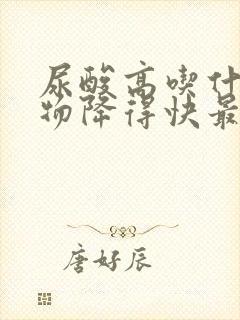 尿酸高喫什
物降得快最
唐好辰